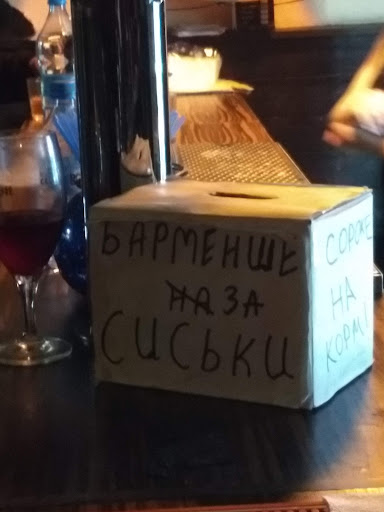 БАРМЕНШЕ
НА ЗА
СИСЬКИ
СОРОКЕ
НА
КОРМ